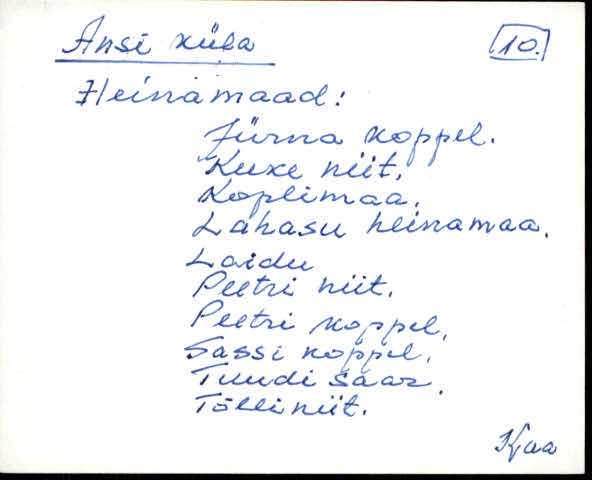 Ansi küla
10.
Heinamaad:
Jürna koppel.
Kuke niit.
Koplimaa.
Lahasu heinamaa.
Laidu
Peetri niit.
Peetri koppel.
Sassi koppel.
Tuudi saar.
Tõlli niit.
Kaa